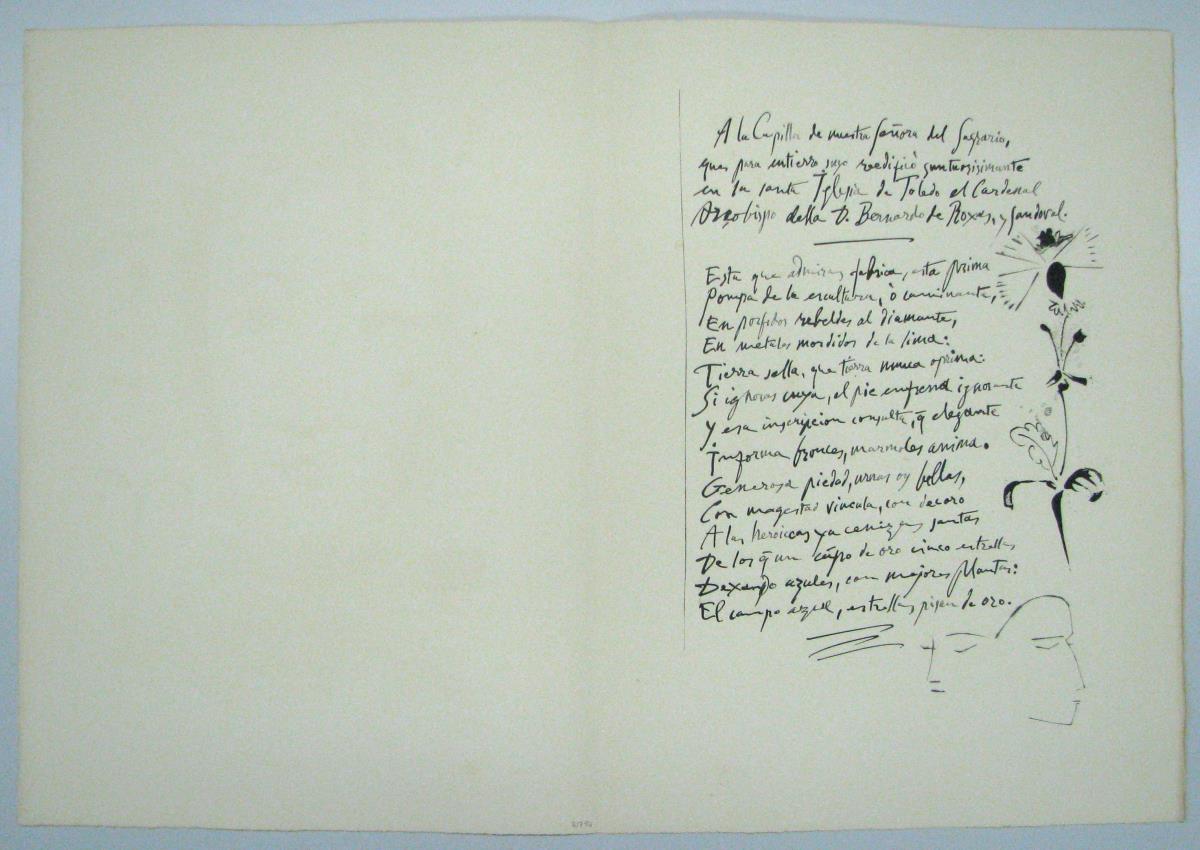 A la Capilla de nuestra Señora del Sagrario,
que para entierro suyo reedificò suntuosisimante
en la santa Iglesia de Toledo el Cardenal
Arzobispo della D. Bernardo de Roxas, y Sandoval.
Esta que admiras fabrica, esta prima
Pompa de la escultura, ò caminante,
En porfidos rebeldes al diamante,
En metales mordidos de la lima:
Tierra sella, que tierra nunca oprima:
Si ignoras cuya, el pie enfrena ignorante
Y esa inscripcion consulta, q̃ elegante
Informa bronces, marmoles anima.
Generosa piedad, urnas oy bellas,
Con magestad vincula, con decoro
A las heroicas ya cenizas santas
De los q̃ un campo de oro cinco estrellas
Dexando azules, con mejores Plantas:
El campo azul, estrellas pisan de oro.